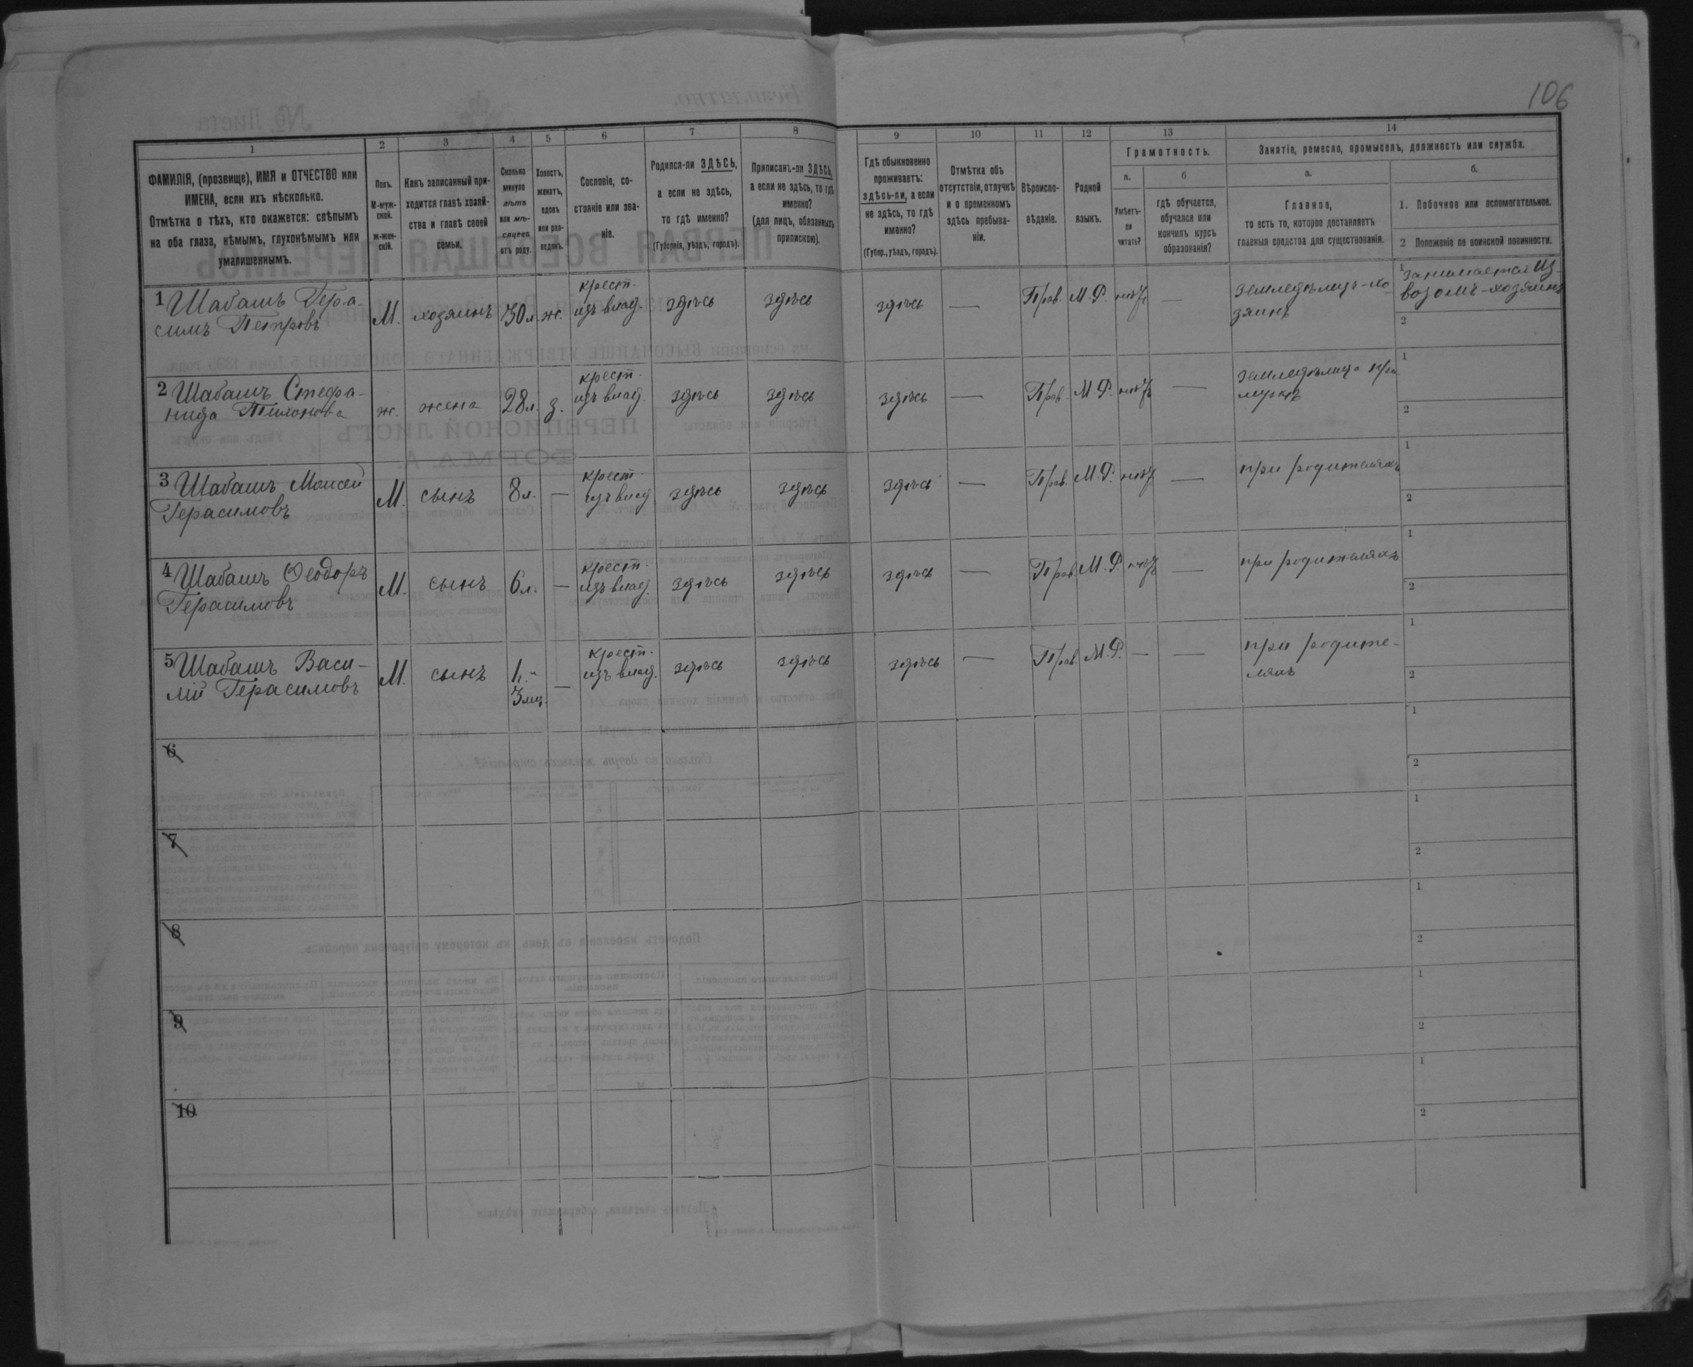 106
1 2 3 4 5 6 7 8 9 10 11 12 13 14
ФАМИЛІЯ, (прозвище), ИМЯ и ОТЧЕСТВО или
ИМЕНА, если ихъ нѣсколько.
Отмѣтка о тѣхъ, кто окажется: слѣпымъ
на оба глаза, нѣмымъ, глухонѣмымъ или
умалишеннымъ.
Полъ.
М-муж-
ской.
ж-жен-
скій.
Какъ записанный при-
ходится главѣ хозяй-
ства и главѣ своей
семьи.
Сколько
минуло
лѣтъ
или мѣ-
сяцевъ
отъ роду.
Холостъ,
женатъ,
вдовъ
или раз-
веденъ.
Сословіе, со-
стояніе или зва-
ніе.
Родился-ли ЗДѢСЬ,
а если не здѣсь,
то гдѣ именно?
(Губернія, уѣздъ, городъ).
Приписанъ-ли ЗДѢСЬ,
а если не здѣсь, то гдѣ
именно?
(для лицъ, обязанныхъ
припискою).
Гдѣ обыкновенно
проживаетъ:
здѣсь-ли, а если
не здѣсь, то гдѣ
именно?
(Губер., уѣздъ, городъ).
Отмѣтка объ
отсутствіи, отлучкѣ
и о временномъ
здѣсь пребыва-
ніи.
Вѣроиспо-
вѣданіе.
Родной
языкъ.
Грамотность.
а.
Умѣетъ-
ли
читать?
б
гдѣ обучается,
обучался или
кончилъ курсъ
образованія?
Занятіе, ремесло, промыселъ, должность или служба.
а.
Главное,
то есть то, которое доставляетъ
главныя средства для существованія.
б.
1. Побочное или вспомогательное.
2 Положеніе по воинской повинности.
1 Шабашъ Гера-
симъ Петровъ
М. хозяинъ 30 л. ж.
крест.
изъ влад. здѣсь здѣсь здѣсь — Прав. М.Р. нѣтъ —
земледѣлецъ-хо
зяинъ
1 занимается из-
возомъ-хозяинъ
2
2 Шабашъ Стефа-
нида Тихонова
ж. жена 28 л. з.
крест.
изъ влад. здѣсь здѣсь здѣсь — Прав. М.Р. нѣтъ —
земледѣлица при
мужѣ
1
2
3 Шабашъ Моисей
Герасимовъ
М. сынъ 8 л. —
крест.
изъ влад здѣсь здѣсь здѣсь — Прав. М.Р. нѣтъ —
при родителяхъ
1
2
4 Шабашъ Ѳеодоръ
Герасимовъ
М. сынъ 6 л. —
крест.
изъ влад. здѣсь здѣсь здѣсь — Прав. М.Р. нѣтъ —
при родителяхъ
1
2
5 Шабашъ Васи-
лій Герасимовъ
М. сынъ 1 г.-
3 мц. —
крест.
изъ влад. здѣсь здѣсь здѣсь — Прав. М.Р. — —
при родите-
ляхъ
1
2
6
1
2
7
1
2
8
1
2
9
1
2
10
1
2